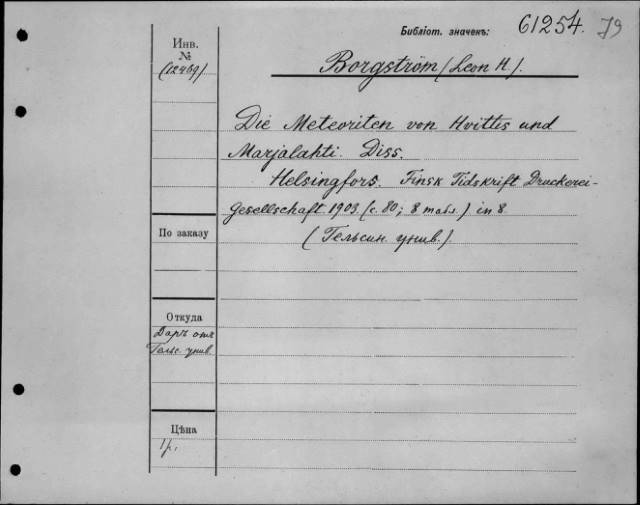 Библіот. значекъ: 61254. 79
Инв.
№
(12469)
Borgström (Leon H.).
Die Meteoriten von Hvittis und
Marjalahti. Diss.
Helsingfors. Finsk Tidskrift Druckerei-
gesellschaft 1903. (с. 80; 8 табл.) in 8.
(Гельсин. унив.).
По заказу
Откуда
Даръ отъ
Гельс. унив.
Цѣна
1р.